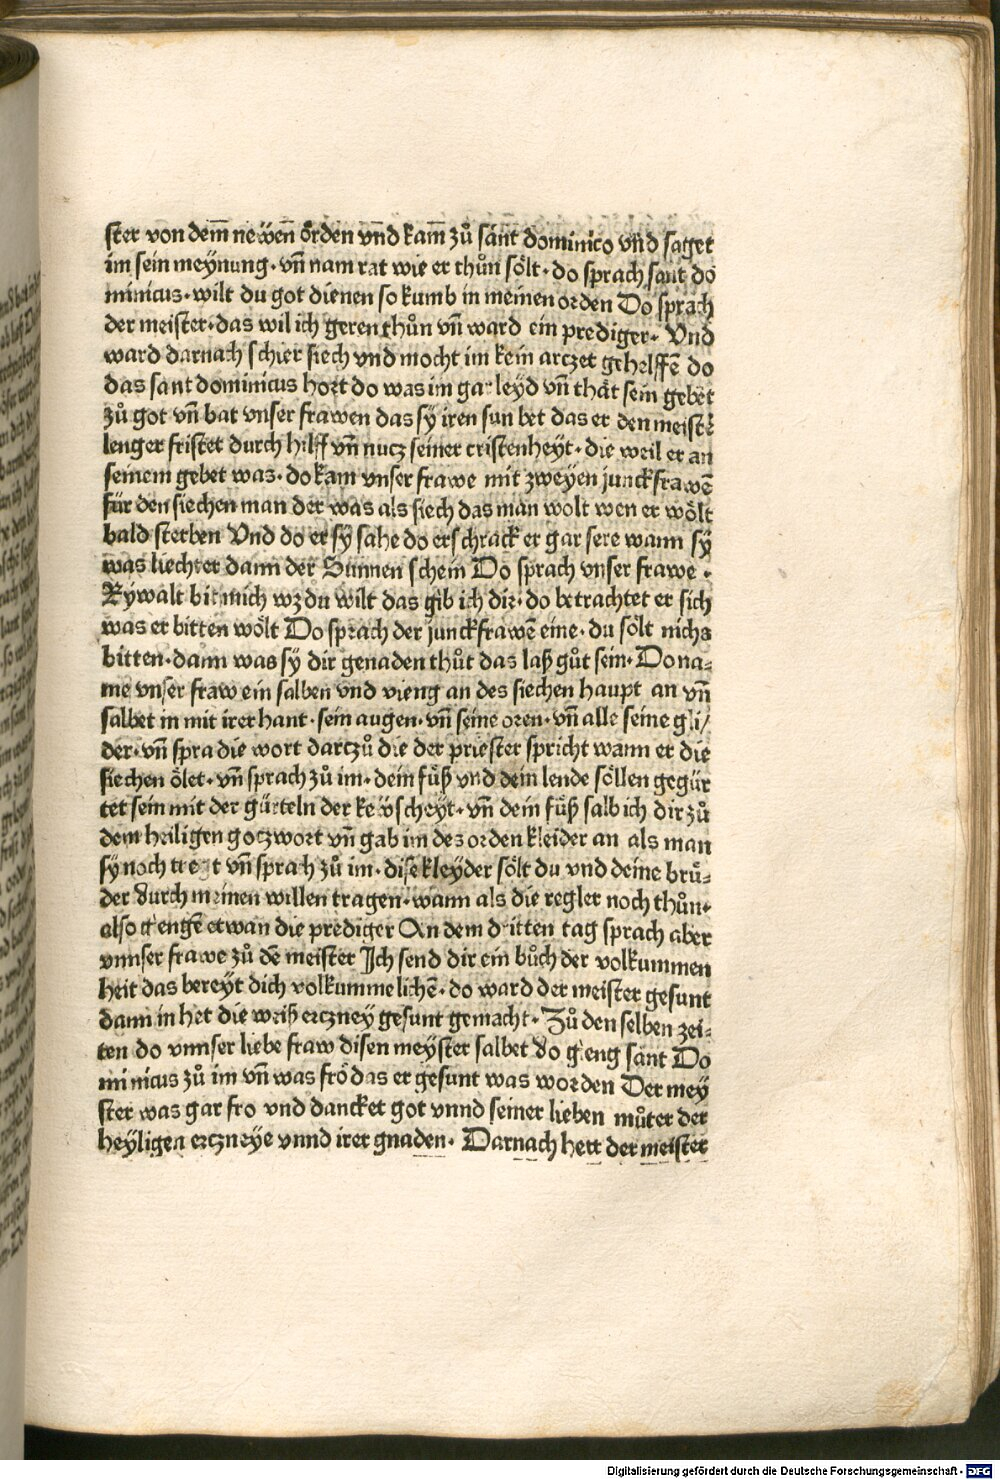 ster von dem̄ neẅen̄ orden vn̄d kam̄ zů sant dominico vnd saget
im sein meynung · vn̄ nam rat wie er thůn sölt · do sprach sant do
minicus · wilt du got dienen so kumb in meinen orden Do sprach
der meister · das wil ich geren thůn vn̄ ward ein prediger · Vnd
ward darnach schier siech vnd mocht im kein arczet gehelffē do
das sant dominicus hort do was im gar leyd vn̄ thät sein gebet
zů got vn̄ bat vnser frawen das sÿ iren sun bet das er den meistē
lenger fristet durch hilff vn̄ nucz seiner cristenheyt · die weil er an
seinem gebet was · do kam vnser frawe mit zweyen junckfrawē
für den siechen man der was als siech das man wolt wen er wölt
bald sterben Vnd do er sÿ sahe do erschrack er gar sere wann sÿ
was liechter dann der Sunnen schein Do sprach vnser frawe ·
Rÿwalt bit mich wz du wilt das gib ich dir · do betrachtet er sich
was er bitten wölt Do sprach der junckfrawē eine · du sölt nichs
bitten · dann was sÿ dir genaden thůt das laß gůt sein · Do na⸗
me vnser fraw ein salben vnd vieng an des siechen haupt an vn̄
salbet in mit irer hant · sein augen · vn̄ seine oren · vn̄ alle seine gli/
der · vn̄ spra die wort darczů die der priester spricht wann er die
siechen ölet · vn̄ sprach zů im · dein fůß vnd dein lende söllen gegür
tet sein mit der gürteln der keẅscheyt · vn̄ dein fůß salb ich dir zů
dem heiligen gotzwort vn̄ gab im des orden kleider an als man
sy noch tregt vn̄ sprach zů im · dise kleyder sölt du vnd deine brů⸗
der durch meinen willen tragen · wann als die regler noch thůn ·
also giengē etwan die prediger An dem dritten tag sprach aber
vnnser frawe zů dē meister Ich send dir ein bůch der volkummen
heit das bereÿt dich volkummelichē · do ward der meister gesunt
dann in het die weiß erczney gesunt gemacht · Zů den selben zei⸗
ten do vnnser liebe fraw disen meyster salbet do gieng sant Do
minicus zů im vn̄ was frö das er gesunt was worden Der mey
ster was gar fro vnd dancket got vnnd seiner lieben můter der
heyligen erczneye vnnd irer gnaden · Darnach hett der meister
Digitalisierung gefördert durch die Deutsche Forschungsgemeinschaft - DFG